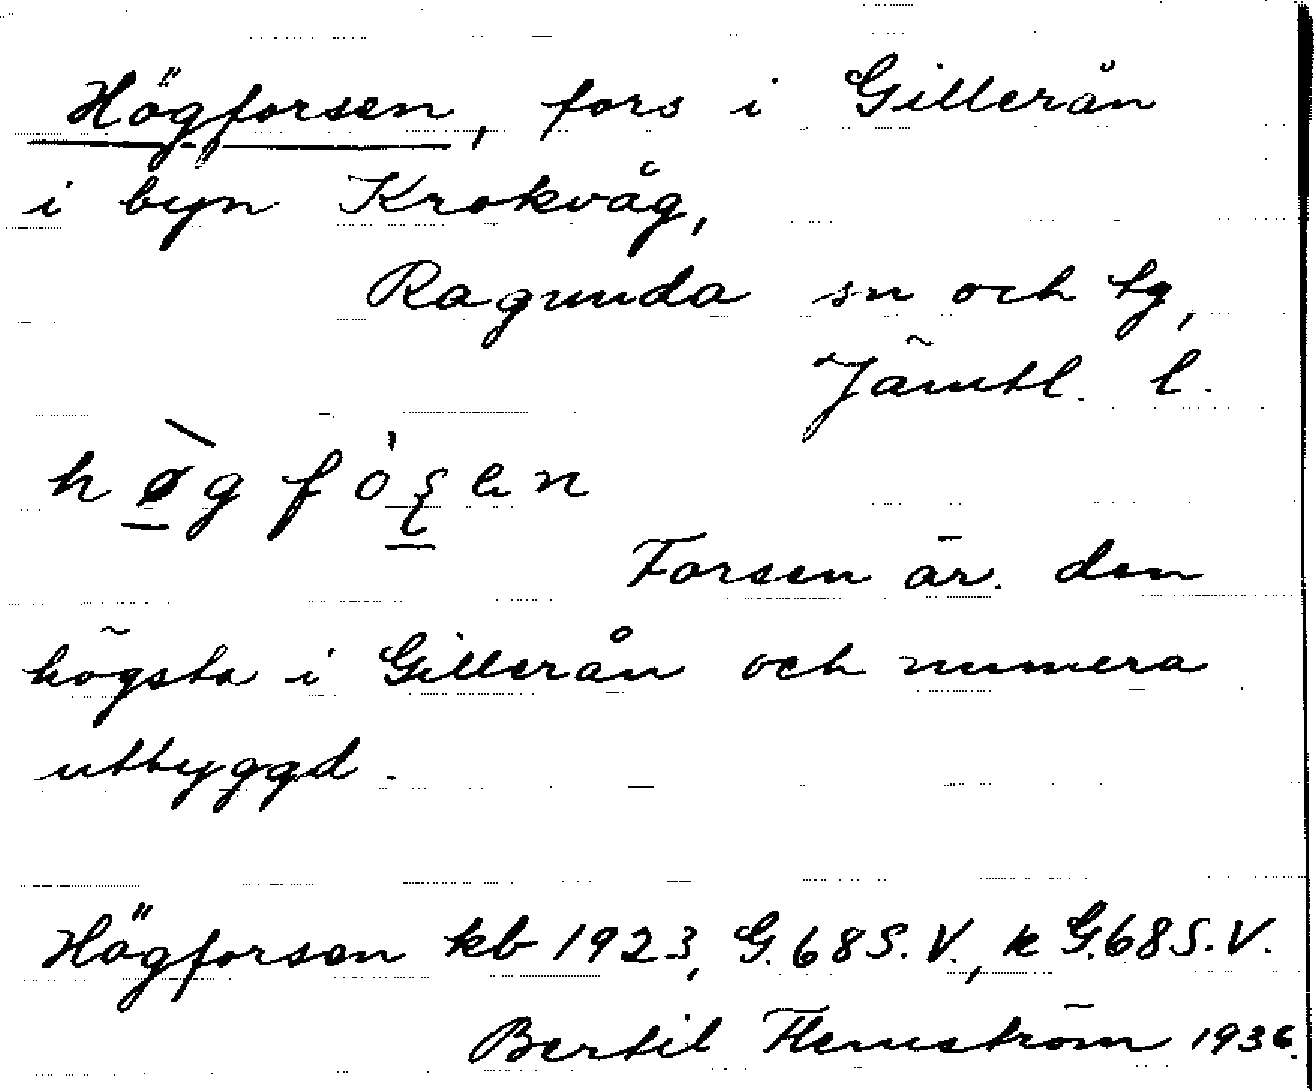 Högforsen, fors i Gillerån
i byn Krokvåg,
Ragunda sn och tg,
Jämtl. l.
Forsen är den
högsta i Gillerån och numera
utbyggd.
Högforsen kb 1923, G. 68 S. V., k G. 68 S. V.
Bertil Flemström 1936.